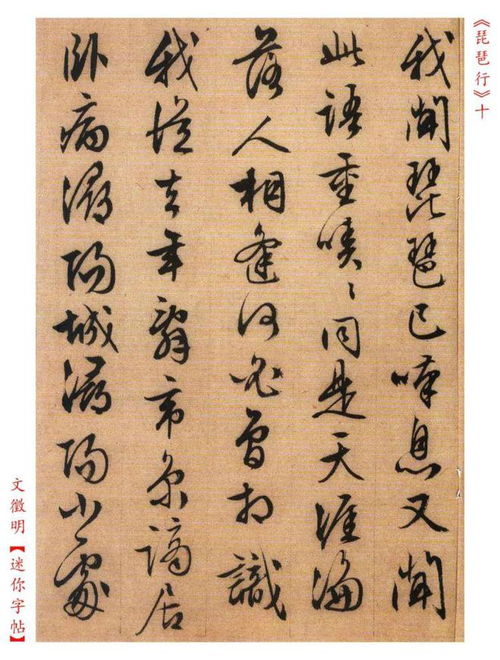 《琵琶行》十
我聞琵琶已嘆息又聞
此語重唧〻同是天涯淪
落人相逢何必曾相識
我從去年辭帝京謫居
臥病潯陽城潯陽小處
文徵明【迷你字帖】